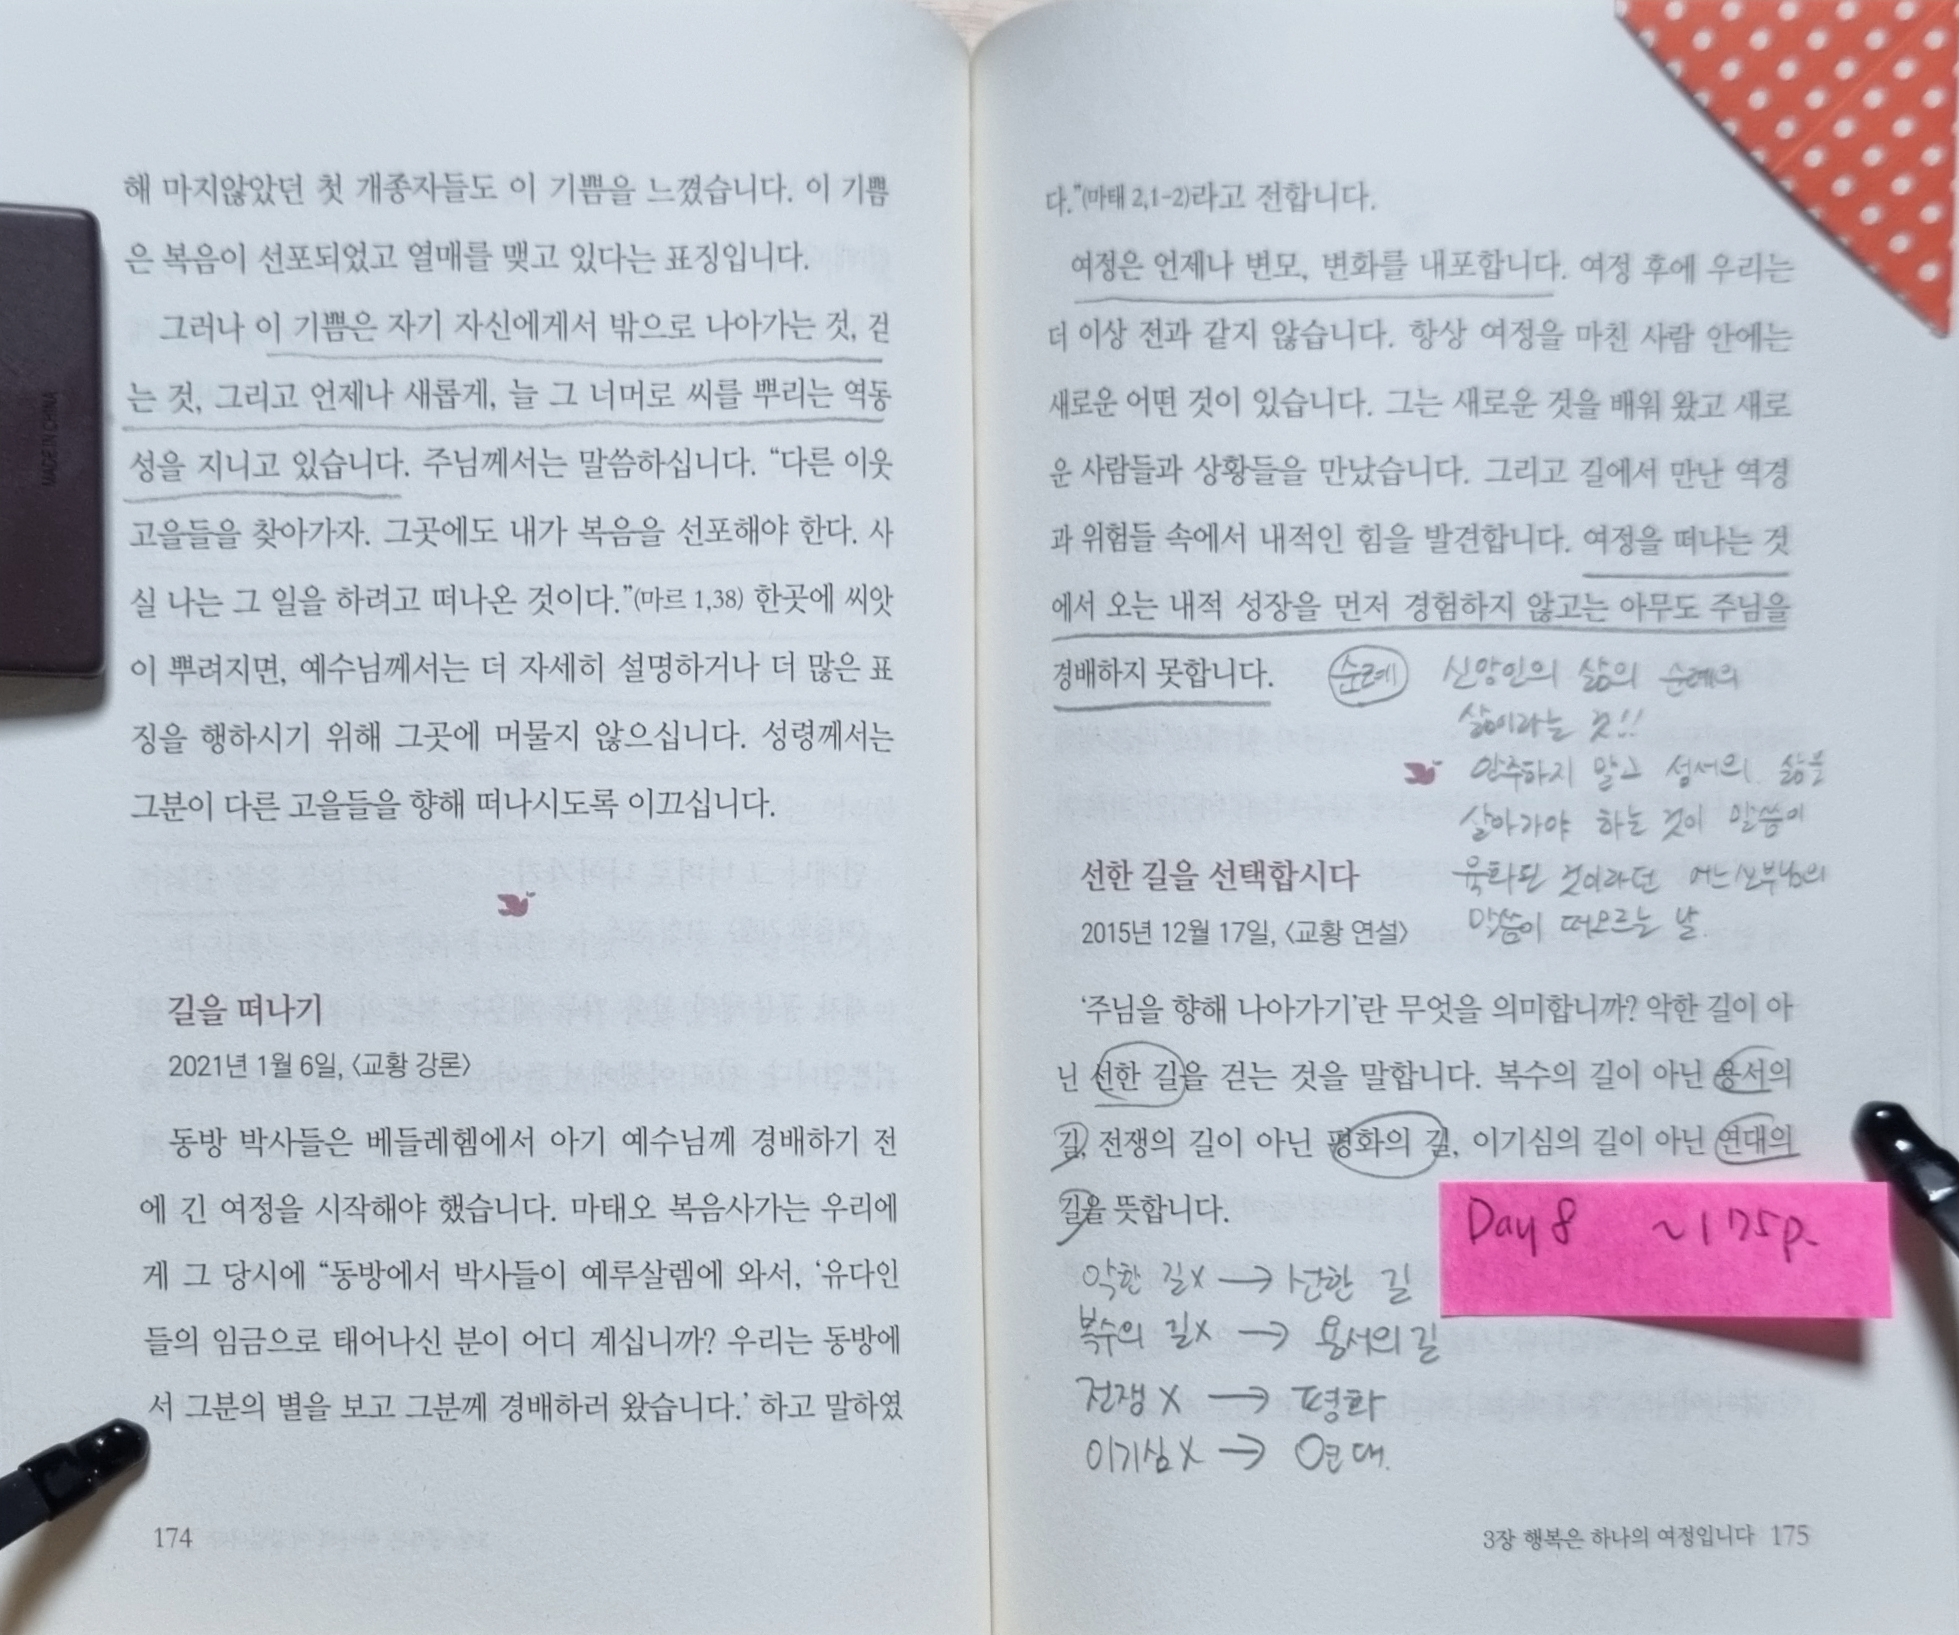 해 마지않았던 첫 개종자들도 이 기쁨을 느꼈습니다. 이 기쁨
은 복음이 선포되었고 열매를 맺고 있다는 표징입니다.
그러나 이 기쁨은 자기 자신에게서 밖으로 나아가는 것, 걷
는 것, 그리고 언제나 새롭게, 늘 그 너머로 씨를 뿌리는 역동
성을 지니고 있습니다. 주님께서는 말씀하십니다. “다른 이웃
고을들을 찾아가자. 그곳에도 내가 복음을 선포해야 한다. 사
실 나는 그 일을 하려고 떠나온 것이다.”(마르 1,38) 한곳에 씨앗
이 뿌려지면, 예수님께서는 더 자세히 설명하거나 더 많은 표
징을 행하시기 위해 그곳에 머물지 않으십니다. 성령께서는
그분이 다른 고을들을 향해 떠나시도록 이끄십니다.
길을 떠나기
2021년 1월 6일, 〈교황 강론〉
동방 박사들은 베들레헴에서 아기 예수님께 경배하기 전
에 긴 여정을 시작해야 했습니다. 마태오 복음사가는 우리에
게 그 당시에 “동방에서 박사들이 예루살렘에 와서, ‘유다인
들의 임금으로 태어나신 분이 어디 계십니까? 우리는 동방에
서 그분의 별을 보고 그분께 경배하러 왔습니다.’ 하고 말하였
174
MADE IN CHINA
다.”(마태 2,1-2)라고 전합니다.
여정은 언제나 변모, 변화를 내포합니다. 여정 후에 우리는
더 이상 전과 같지 않습니다. 항상 여정을 마친 사람 안에는
새로운 어떤 것이 있습니다. 그는 새로운 것을 배워 왔고 새로
운 사람들과 상황들을 만났습니다. 그리고 길에서 만난 역경
과 위험들 속에서 내적인 힘을 발견합니다. 여정을 떠나는 것
에서 오는 내적 성장을 먼저 경험하지 않고는 아무도 주님을
경배하지 못합니다.
순례 신앙인의 삶의 순례의
삶이라는 것!!
안주하지 말고 성서의 삶을
살아가야 하는 것이 말씀이
육화된 것이라던 어느 신부님의
말씀이 떠오르는 날.
선한 길을 선택합시다
2015년 12월 17일, 〈교황 연설〉
‘주님을 향해 나아가기’란 무엇을 의미합니까? 악한 길이 아
닌 선한 길을 걷는 것을 말합니다. 복수의 길이 아닌 용서의
길, 전쟁의 길이 아닌 평화의 길, 이기심의 길이 아닌 연대의
길을 뜻합니다.
Day 8 ~175p.
악한 길x → 선한 길
복수의 길x → 용서의 길
전쟁 x → 평화
이기심 x → 연대.
3장 행복은 하나의 여정입니다 175